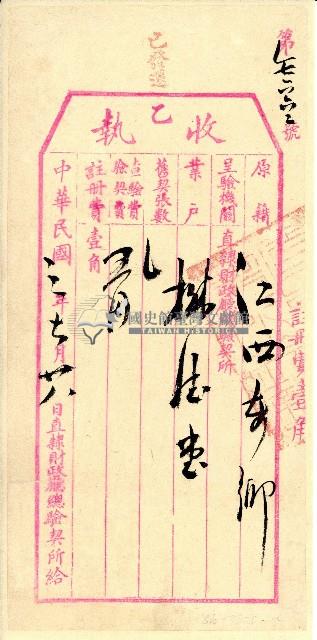 第七六六二號
已發還
收乙執
原籍 江西本鄉
呈驗機關 直隸財政廳總驗契所
業戶 林德堂
舊契張數 乙
驗契費
註冊費壹角
中華民國三年七月廿八日直隸財政廳總驗契所給
註冊費壹角
國史館臺灣文獻館
TAIWAN HISTORICA